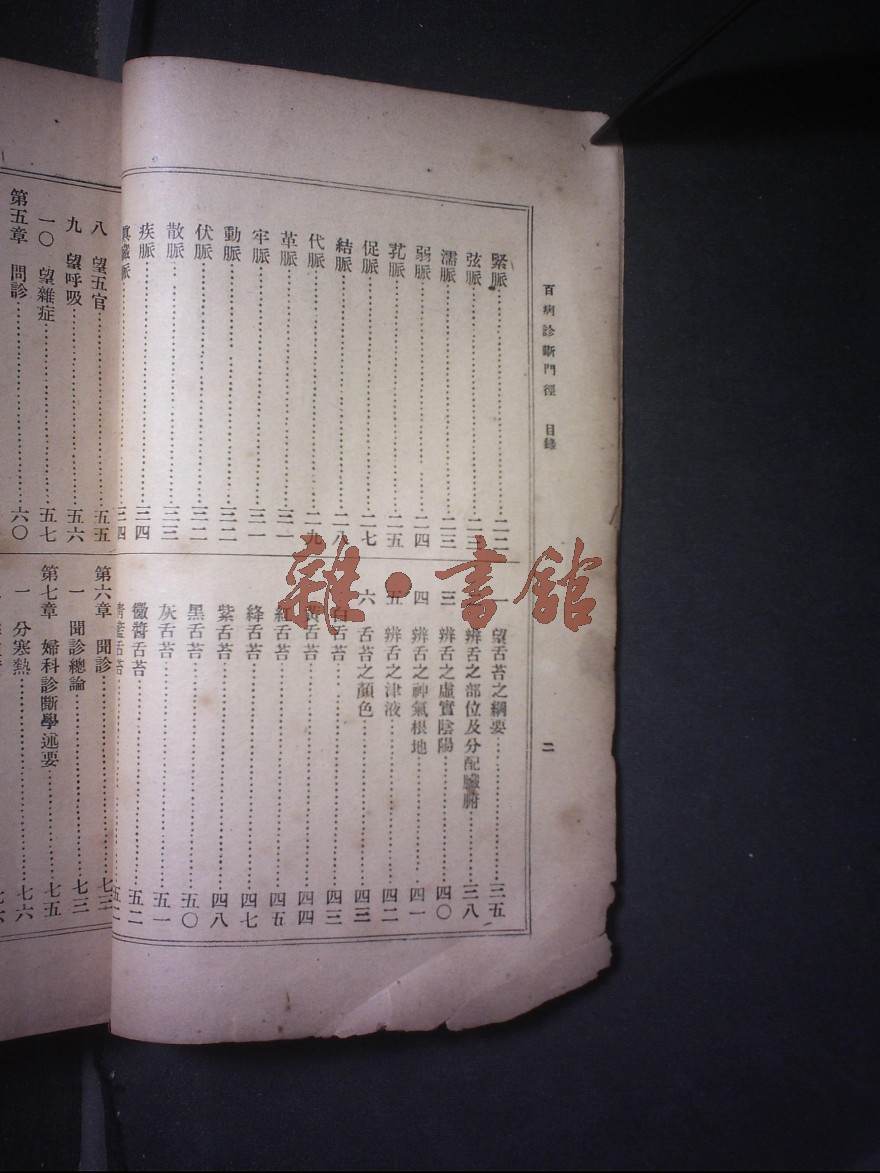 百病診斷門徑 目錄
二
緊脈 二二
弦脈 二三
濡脈 二三
弱脈 二四
芤脈 二五
促脈 二七
結脈 二八
代脈 二九
革脈 三一
牢脈 三一
動脈 三二
伏脈 三二
散脈 三三
疾脈 三四
眞臟脈 三四
一 望舌苔之綱要 三五
二 辨舌之部位及分配臟腑 三八
三 辨舌之虛實陰陽 四〇
四 辨舌之神氣根地 四一
五 辨舌之津液 四二
六 舌苔之顏色 四三
白舌苔 四三
黃舌苔 四四
紅舌苔 四五
絳舌苔 四七
紫舌苔 四八
黑舌苔 五〇
灰舌苔 五一
黴醬舌苔 五二
舌苔
八 望五官 五五
九 望呼吸 五六
一〇 望雜症 五七
第五章 問診 六〇
第六章 聞診 七三
一 聞診總論 七三
第七章 婦科診斷學述要 七五
一 分寒熱 七六
雜·書館